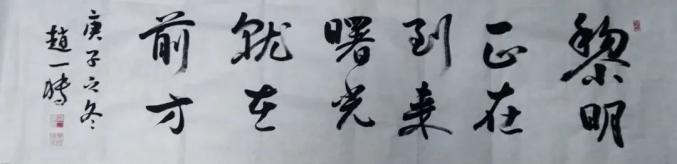 黎明
正在
到来
曙光
就在
前方
庚子之冬
趙一博